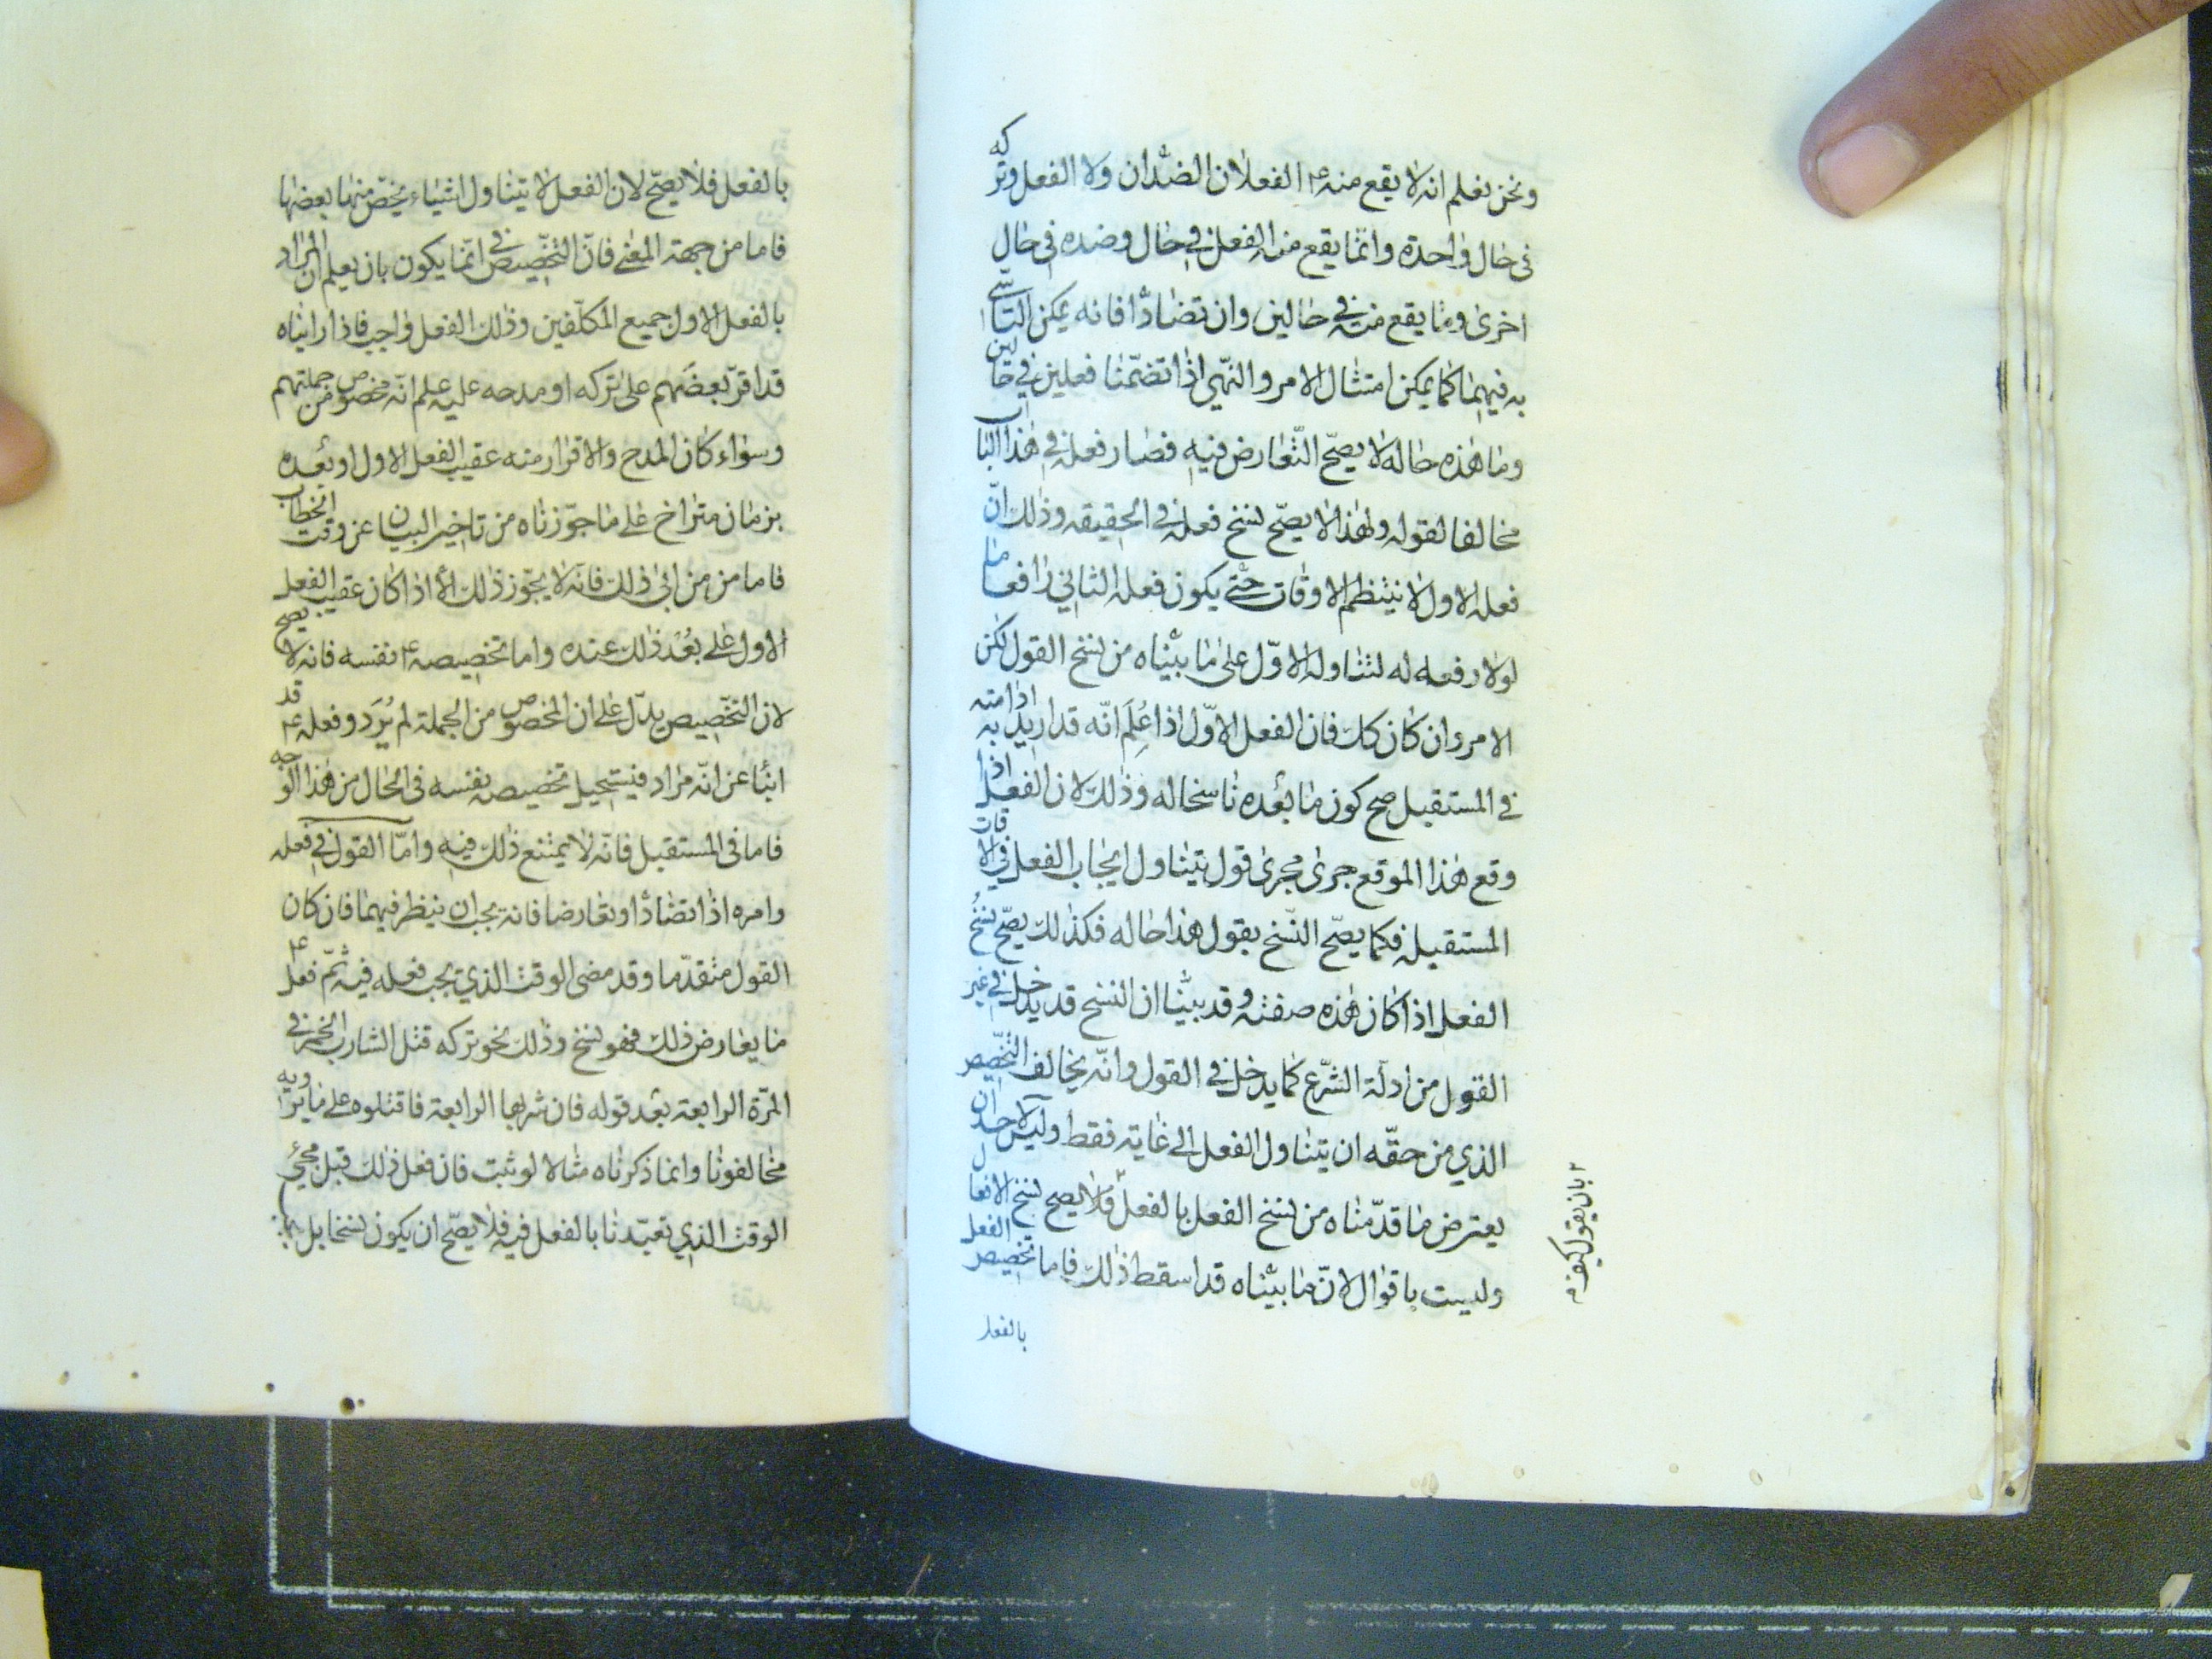 ونحن نعلم انه لا يقع منه ع الفعلان الضدان ولا الفعل وتركه
فى حال واحدة وانما يقع منه الفعل في حال وضده فى حال
اخرى وما يقع منه في حالين وان تضادا فانه يمكن التاسي
به فيهما كما يمكن امتثال الامر والنهي اذا تضمنا فعلين في حالين
وما هذه حاله لا يصح التعارض فيه فصار فعله في هذا الباب
مخالفا لقوله ولهذا لا يصح نسخ فعله في الحقيقه وذلك ان
فعله الاول لا ينتظم الاوقات حتى يكون فعله الثاني رافعا ما
لولا رفعه له لتناوله الاول على ما بيناه من نسخ القول لكن
الامر وان كان كك فان الفعل الاول اذا علم انه قد اريد به ادامته
في المستقبل صح كون ما بعده ناسخا له وذلك لان الفعل اذا
وقع هذا الموقع جرى مجرى قول يتناول ايجاب الفعل في الاوقات
المستقبله فكما يصح النسخ بقول هذا حاله فكذلك يصح نسخ
الفعل اذا كان هذه صفته وقد بينا ان النسخ قد يدخل في غير
القول من ادلة الشرع كما يدخل في القول وانه يخالف التخصيص
الذي من حقه ان يتناول الفعل الى غايته فقط وليس لاحد ان
يعترض ما قدمناه من نسخ الفعل بالفعل فلا يصح نسخ الافعال
وليست باقوال لان ما بيناه قد اسقط ذلك فاما تخصيص الفعل
بالفعل
بان يقول كيف
بالفعل فلا يصح لان الفعل لا يتناول اشياء يخص منها بعضها
فاما من جهة المعنى فان التخصيص في انما يكون بان يعلم ان المراد
بالفعل الاول جميع المكلفين وذلك الفعل واجب فاذا رايناه
قد اقر بعضهم على تركه او مدحه عليه علم انه مخصوص من جملتهم
وسواء كان المدح والاقرار منه عقيب الفعل الاول او بعده
بزمان متراخ على ما جوزناه من تاخير البيان عن وقت الخطاب
فاما من من ابى ذلك فانه لا يجوز ذلك الا اذا كان عقيب الفعل
الاول على بعد ذلك عنده واما تخصيصه ع نفسه فانه لا يصح
لان التخصيص يدل على ان المخصوص من الجملة لم يرد وفعله ع قد
انبئا عن انه مراد فيستحيل تخصيص نفسه فى الحال من هذا الوجه
فاما فى المستقبل فانه لا يمتنع ذلك فيه واما القول في فعله
وامره اذا تضادا وتعارضا فانه يجب ان ينظر فيهما فان كان
القول متقدما وقد مضى الوقت الذي يجب فعله فيه ثم فعل ع
ما يعارض ذلك فهو نسخ وذلك نحو تركه قتل الشارب الخمر في
المرة الرابعة بعد قوله فان شربها الرابعة فاقتلوه على ما يرويه
مخالفونا وانما ذكرناه مثالا لو ثبت فان فعل ذلك قبل مجئ
الوقت الذي تعبدنا بالفعل فيه فلا يصح ان يكون نسخا بل